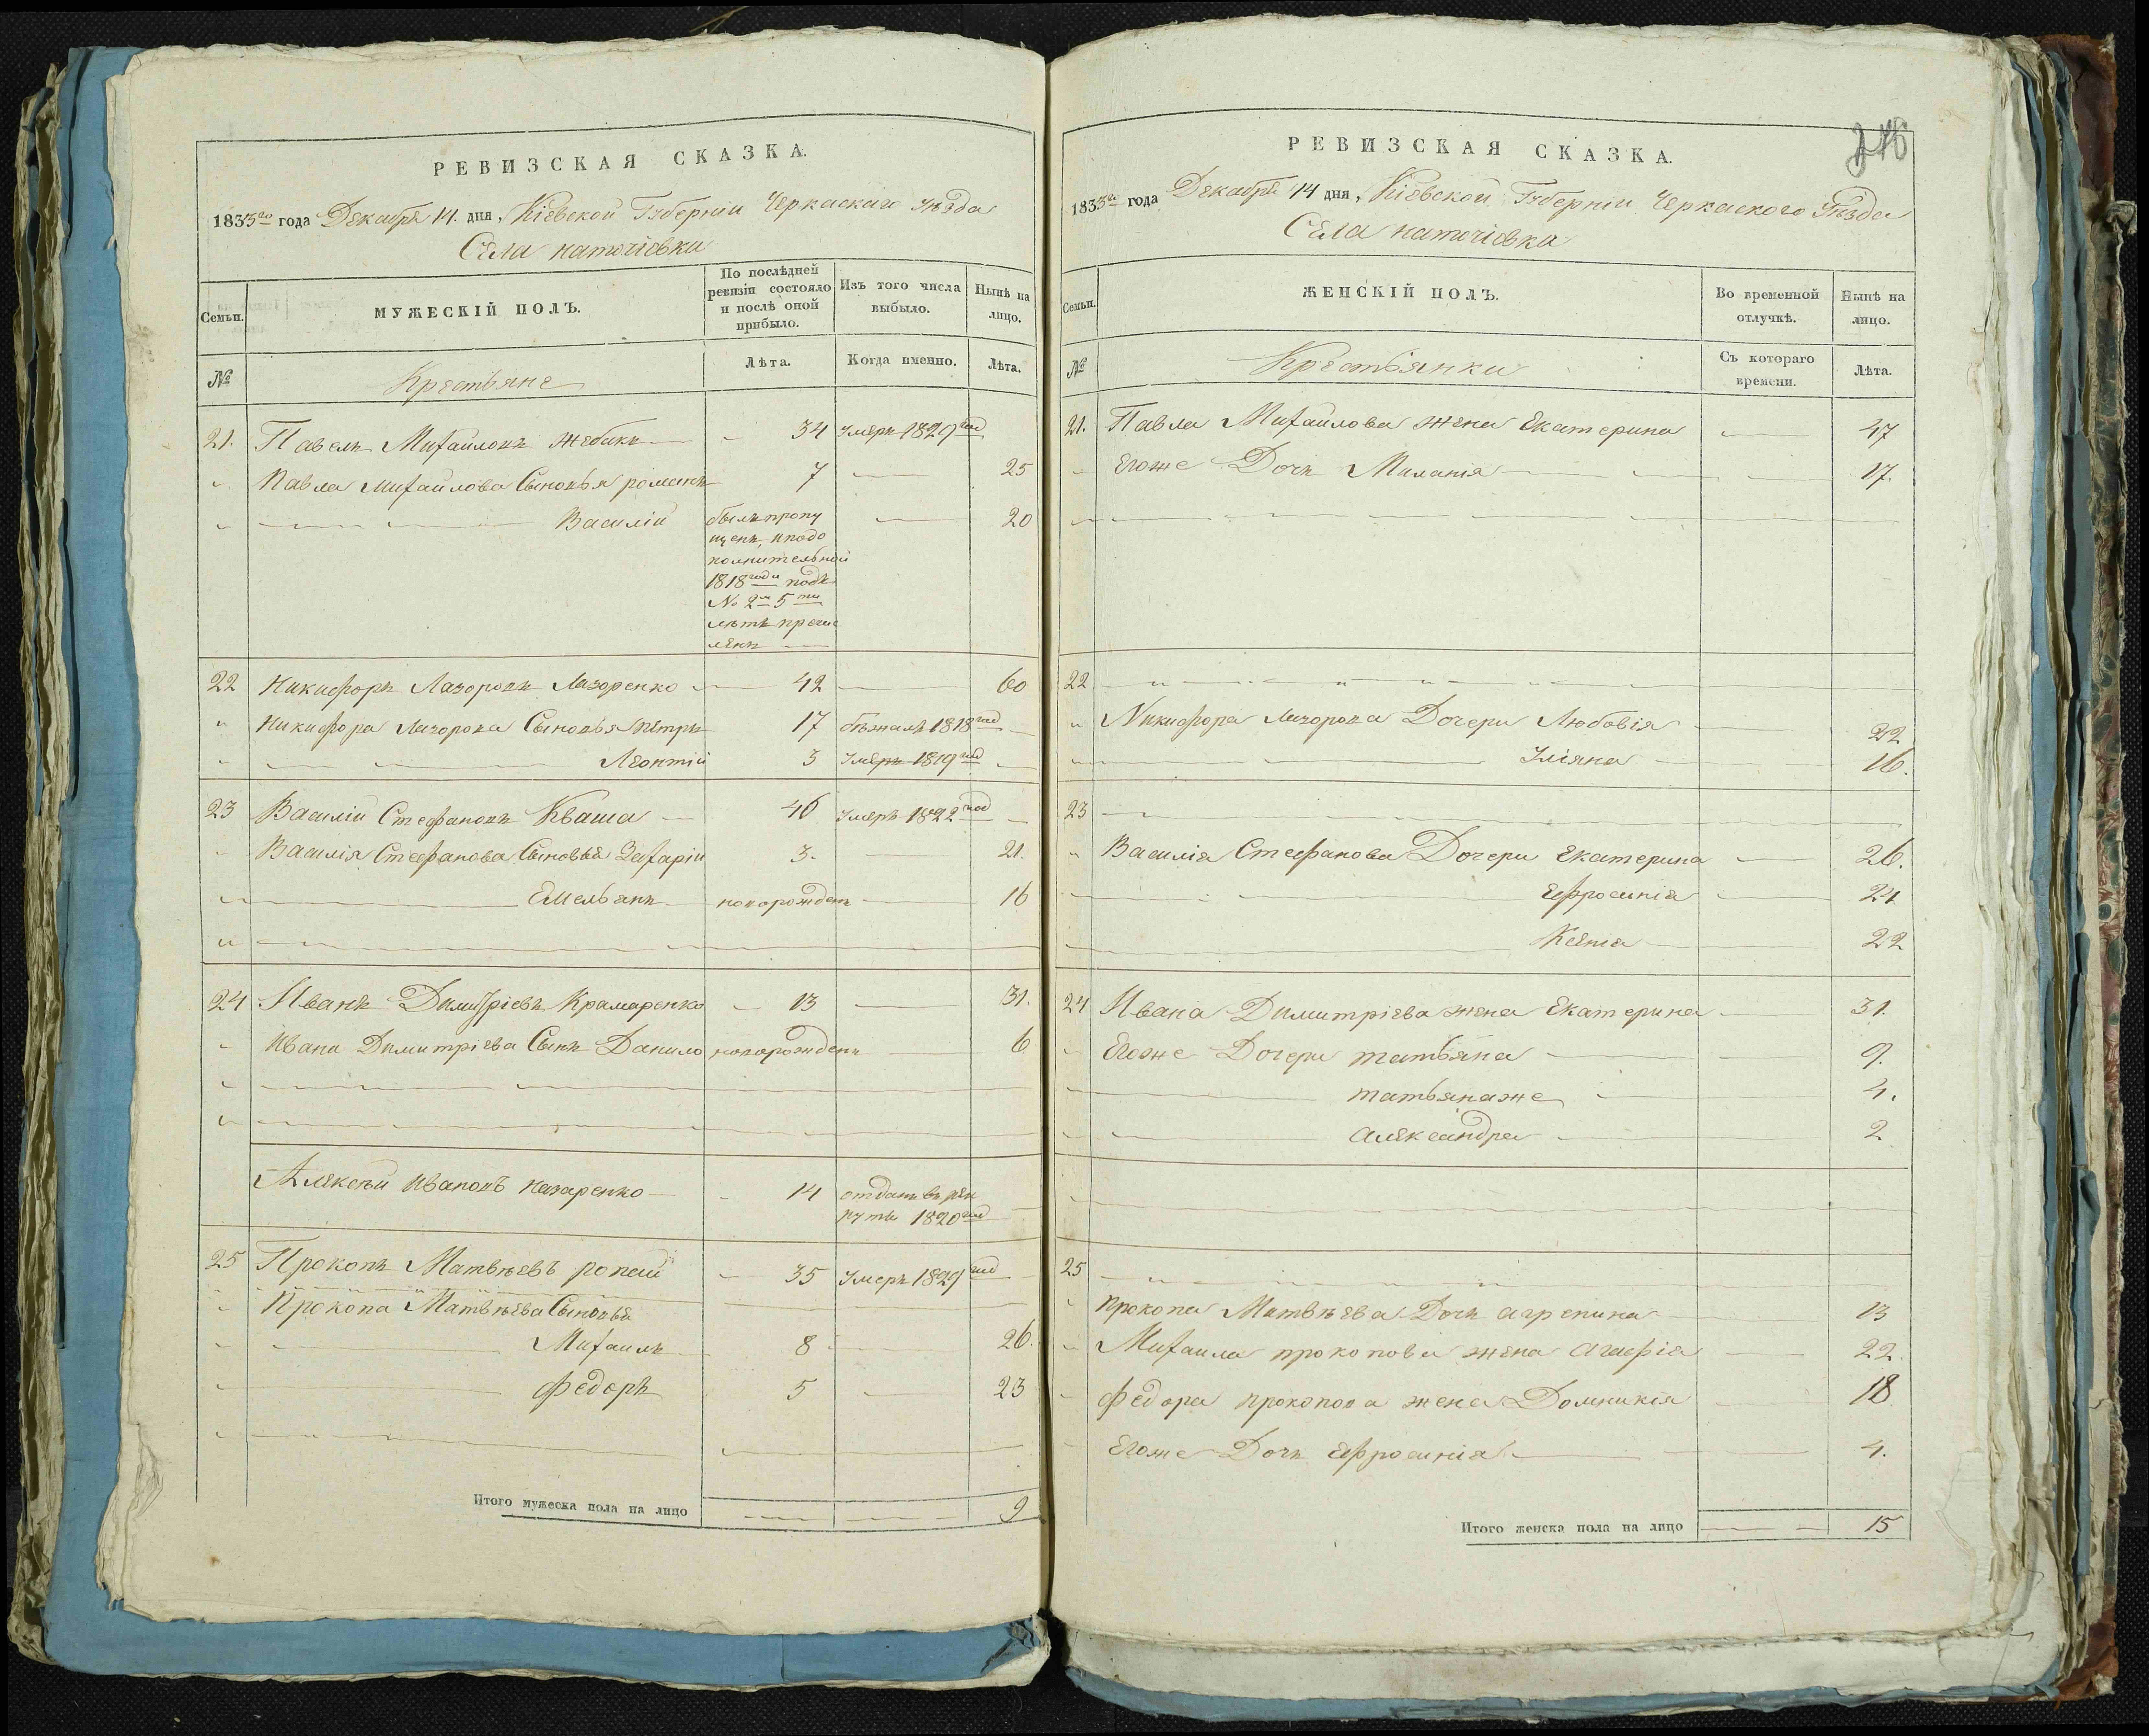 РЕВИЗСКАЯ СКАЗКА.
1833го года Декабря 14. дня, Кіевской Губерніи Черкаскаго Уѣзда
Села
Семьи.
МУЖЕСКІЙ ПОЛЪ.
По послѣдней ревизіи состояло и послѣ оной прибыло.
Изъ того числа выбыло.
Нынѣ на лицо.
№
Крестьяне
Лѣта.
Когда именно.
Лѣта.
21. Павелъ Михайловъ 34 Умеръ 1829 год
Павла Михайлова Сыновья романъ 7 25
Василій былъ пропу 20
щенъ, иподо
полнительной
1818 года подъ
№ 2м 5ти
лѣтъ причи
ленъ
22 Никифоръ Лазоровъ Лазоренко 42 60
Никифора Лазорова Сыновья петръ 17 бѣжалъ 1818 год
Леонтій 3 Умеръ 1819 год
23 Василій Стефановъ Кваша 46 Умеръ 1822 год
Василія Стефанова Сыновья Захарій 3. 21.
Емельянъ новорожденъ 16
24 Иванъ Димитріевъ Крамаренко 13 31.
Ивана Димитріева Сынъ Данило новорожденъ 6
Алексѣй Ивановъ Назаренко 14 отданъ въ рек
руты 1820 год
25 Прокопъ Матвѣевъ 35 Умеръ 1829 год
Прокопа Матвѣева Сыновья
Михаилъ 8 26.
Федоръ 5 23
Итого мужеска пола на лицо 9
246
РЕВИЗСКАЯ СКАЗКА.
1833го года Декабря 14 дня, Кіевской Губерніи Черкаского Уѣзда
Села
Семьи.
ЖЕНСКІЙ ПОЛЪ.
Во временной отлучкѣ.
Нынѣ на лицо.
№
Крестьянки
Съ котораго времени.
Лѣта.
21. Павла Михайлова жена Екатерина 47
Егоже Дочь Миланія 17.
22
Никифора Лазорова Дочери Любовія 22
Уліяна 16.
23
Василія Стефанова Дочери Екатерина 26.
Ефросинія 24
Ксенія 22
24 Ивана Димитріева жена Екатерина 31.
Егоже Дочери татьяна 9.
татьянаже 4.
александра 2
25
Прокопа Матвѣева Дочь агрепина 13
Михаила прокопова жена агафія 22.
Федора прокопова жена Домникія 18
Егоже Дочь Ефросинія 4.
Итого женска пола на лицо 15